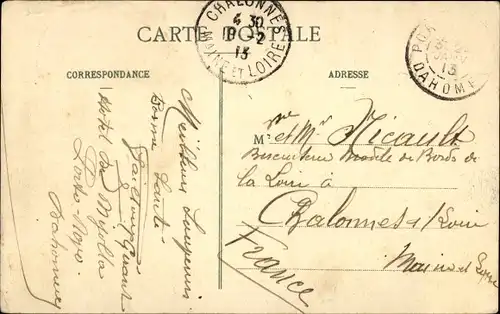 CARTE POSTALE
CHALONNES
4 30
19 - 2
13
MAINE ET LOIRE
DAHOMEY
13
CORRESPONDANCE
ADRESSE
Meilleurs Souvenirs
Bonne Santé
Hotel du
Porto Novo
Dahomey
Mme et Mr Nicault
Modèle de Bords de
la Loire à
Chalonnes s/ Loire
Maine et Loire
France